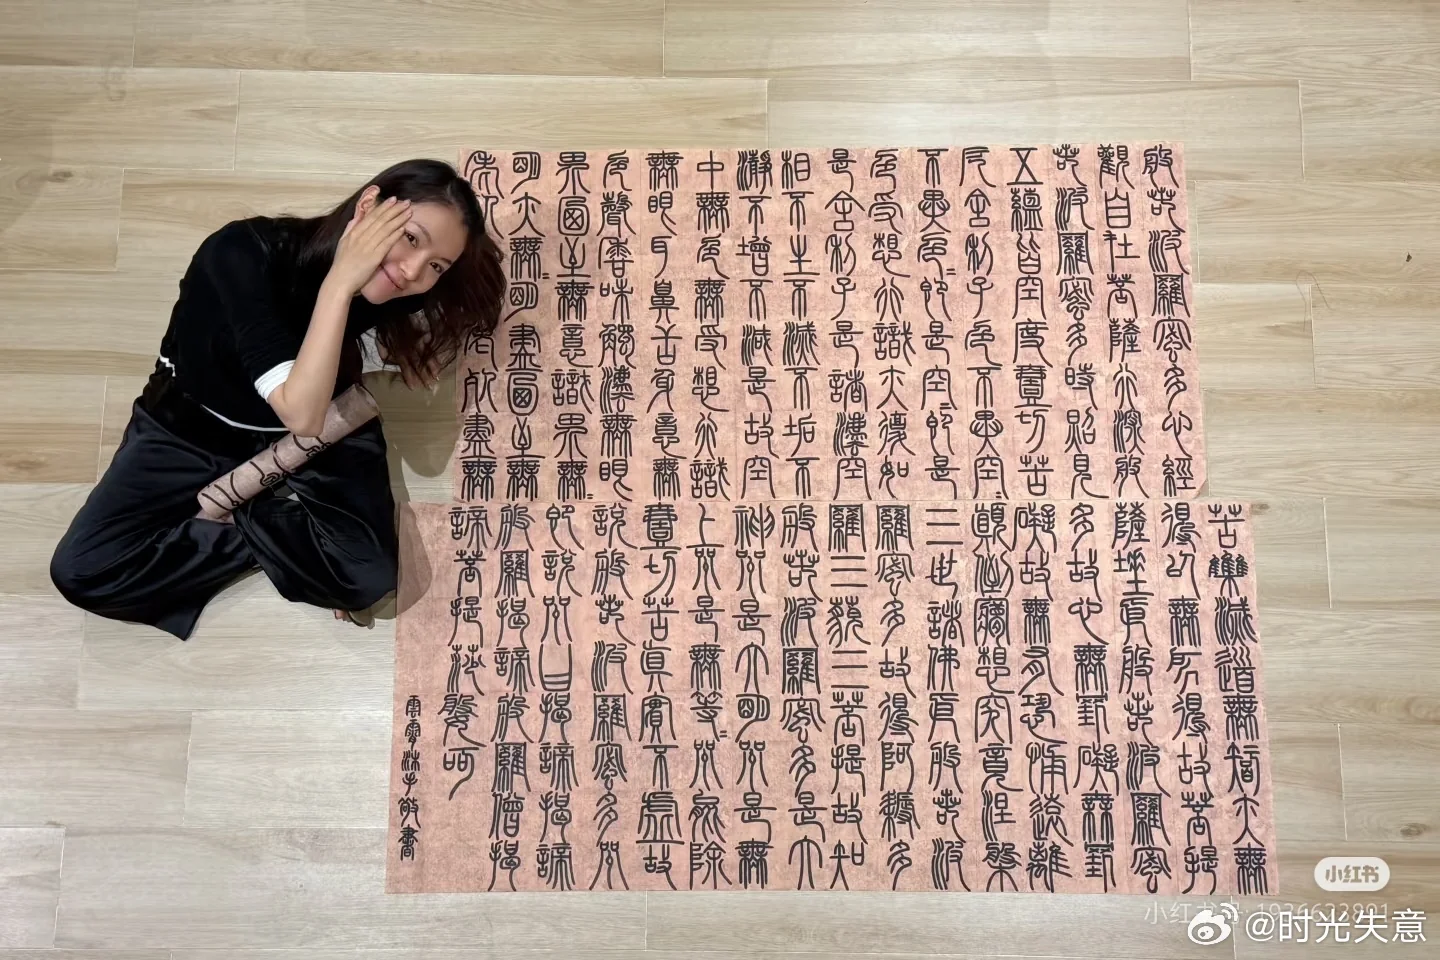 般若波羅蜜多心經
觀自在菩薩行深般
若波羅蜜多時照見
五蘊皆空度壹切苦
厄舍利子色不異空=
不異色=即是空=即是
色受想行識亦復如
是舍利子是諸灋空
相不生不滅不垢不
瀞不增不減是故空
中無色無受想行識
無眼耳鼻舌身意無
色聲香味觸灋無眼
界乃至無意識界無=
明亦無=明盡乃至無
老死 老死盡無
苦集滅道無智亦無
得以無所得故菩提
薩埵依般若波羅蜜
多故心無罣礙無罣
礙故無有恐怖遠離
顛倒夢想究竟涅槃
三世諸佛依般若波
羅蜜多故得阿耨多
羅三藐三菩提故知
般若波羅蜜多是大
神咒是大明咒是無
上咒是無等=咒能除
壹切苦真實不虛故
說般若波羅蜜多咒
即說咒曰揭諦揭諦
般羅揭諦般羅僧揭
諦菩提莎婆呵
沐手敬書
小红书
小红书号:
@时光失意